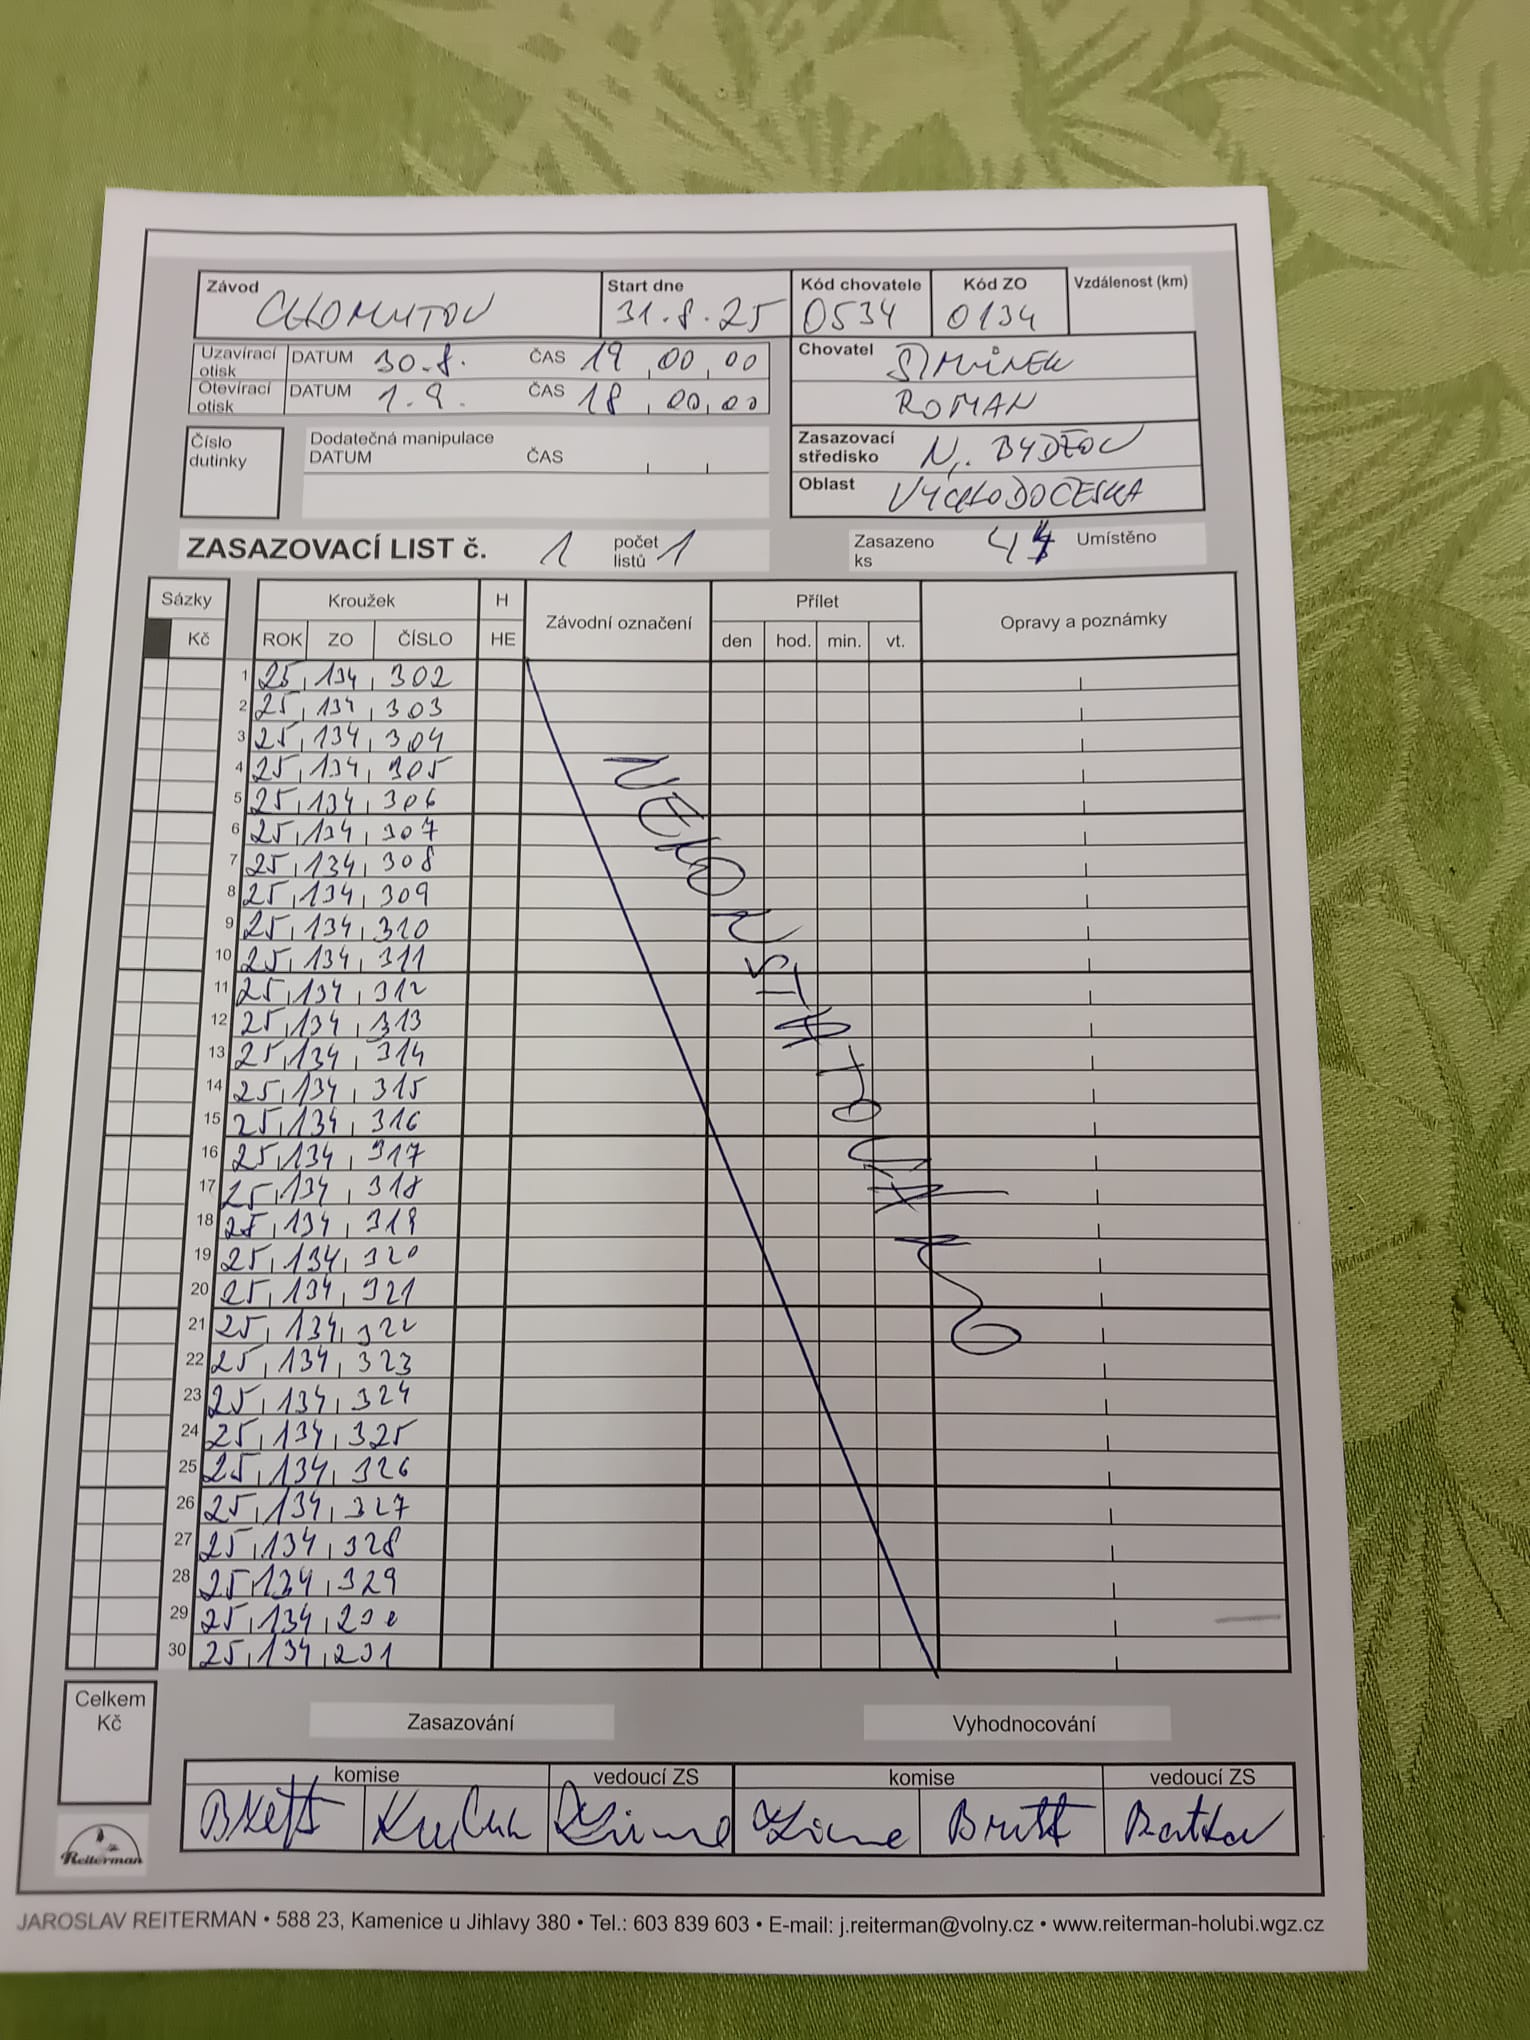 Závod CHOMUTOV
Start dne 31.8.25
Kód chovatele 0534
Kód ZO 0134
Vzdálenost (km)
Uzavírací otisk DATUM 30.8. ČAS 19,00,00
Otevírací otisk DATUM 1.9. ČAS 18,00,00
Chovatel ŠIMŮNEK
ROMAN
Číslo dutinky
Dodatečná manipulace
DATUM ČAS
Zasazovací středisko N. BYDŽOV
Oblast VÝCHODOČESKÁ
ZASAZOVACÍ LIST č. 1 počet listů 1
Zasazeno ks
Umístěno
Sázky Kroužek H Závodní označení Přílet Opravy a poznámky
Kč ROK ZO ČÍSLO HE den hod. min. vt.
1 25,134,302
2 25,134,303
3 25,134,304
4 25,134,305
5 25,134,306
6 25,134,307
7 25,134,308
8 25,134,309
9 25,134,310
10 25,134,311
11 25,134,312
12 25,134,313
13 25,134,314
14 25,134,315
15 25,134,316
16 25,134,317
17 25,134,318
18 25,134,319
19 25,134,320
20 25,134,321
21 25,134,322
22 25,134,323
23 25,134,324
24 25,134,325
25 25,134,326
26 25,134,327
27 25,134,328
28 25,134,329
29 25,134
30 25,134,231
Celkem Kč
Zasazování Vyhodnocování
komise vedoucí ZS komise vedoucí ZS
Reiterman
JAROSLAV REITERMAN • 588 23, Kamenice u Jihlavy 380 • Tel.: 603 839 603 • E-mail: j.reiterman@volny.cz • www.reiterman-holubi.wgz.cz